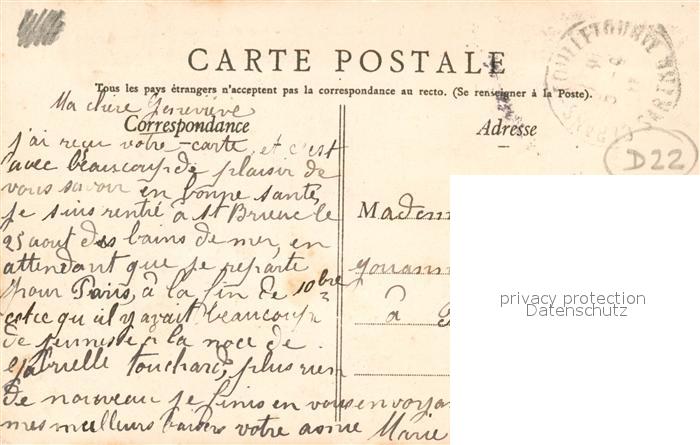 CARTE POSTALE
Tous les pays étrangers n'acceptent pas la correspondance au recto. (Se renseigner à la Poste).
Ma chère Geneviève
Correspondance
j'ai reçu votre carte, et c'est
avec beaucoup de plaisir de
vous savoir en bonne santé,
je suis rentré à St Brieuc le
25 aout des bains de mer, en
attendant que je reparte
pour Paris, à la fin de 10bre
estce qu'il y avait beaucoup
de jeunesse a la noce de
Gabrielle Touchard, plus rien
de nouveau je finis en vous envoyan
mes meilleurs baisers votre amie Marie
Adresse
D22
Madem
à
privacy protection
Datenschutz